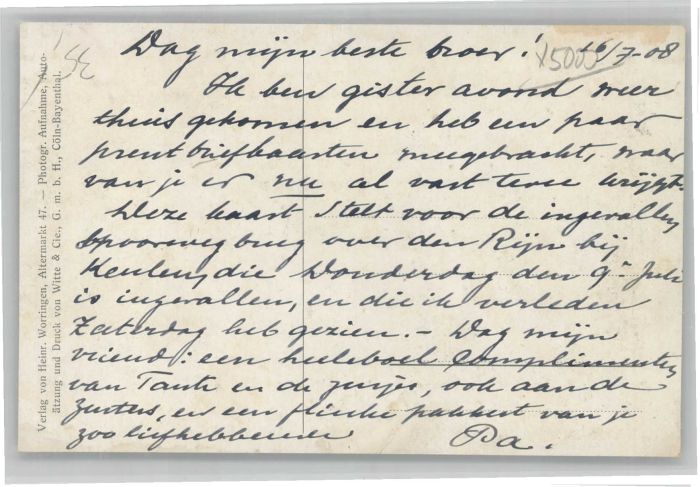 Dag mijn beste broer! 16/7-08
Ik ben gister avond weer
thuis gekomen en heb een paar
prentbriefkaarten meegebracht, waar
van je er nu al vast twee krijgt.
Deze kaart stelt voor de ingevallen
spoorwegbrug over den Rijn bij
Keulen, die Donderdag den 9n Juli
is ingevallen, en die ik verleden
Zaterdag heb gezien. - Dag mijn
vriend: een heeleboel complimenten
van Tante en de jusjes, ook aan de
zustus, en een flinke pakkert van je
zoo liefhebbende Pa.
Verlag von Heinr. Worringen, Altermarkt 47. — Photogr. Aufnahme, Auto-
ätzung und Druck von Witte & Cie., G. m. b. H., Cöln-Bayenthal.